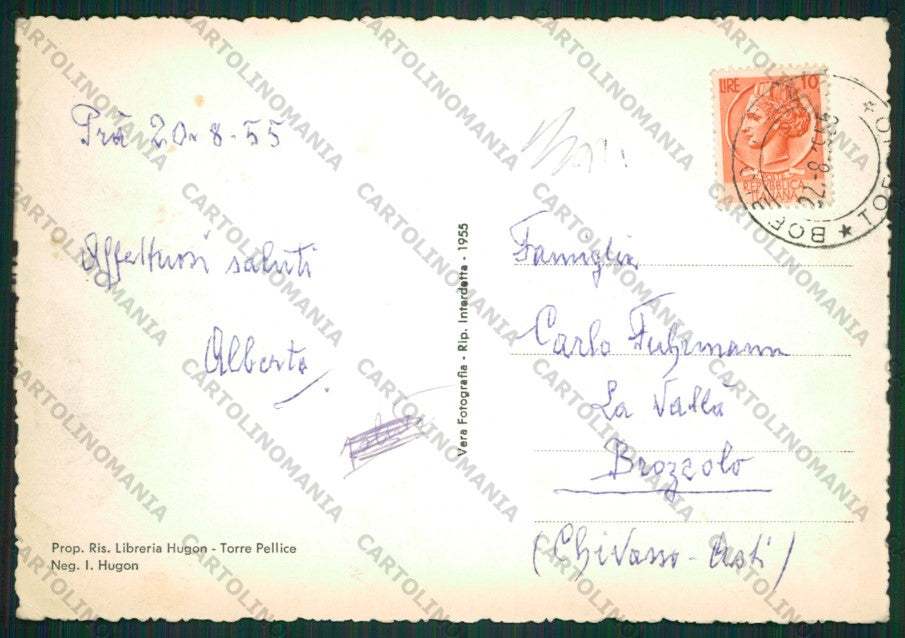 Prà 20-8-55
Affettuosi saluti
Alberto
Prop. Ris. Libreria Hugon - Torre Pellice
Neg. I. Hugon
Vera Fotografia - Rip. Interdetta - 1955
LIRE 10
POSTE
REPUBBLICA
ITALIANA
22-8
Famiglia
Carlo Fuhrmann
La Vallà
Brozzolo
(Chivasso - Asti)
CARTOLINOMANIA